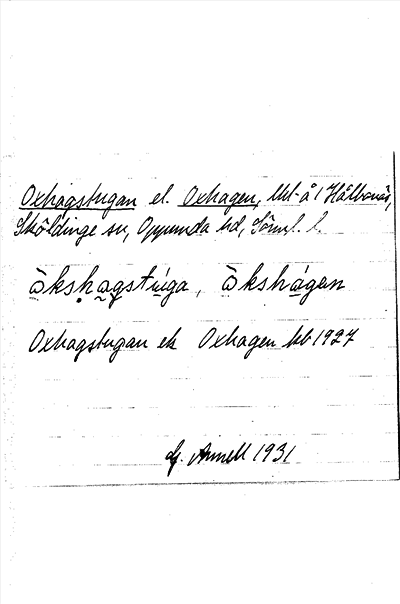 Oxhagstugan el. Oxhagen, lht å 1 Hålbonäs,
Sköldinge sn, Oppunda hd, Sörml. l.
òkshagstúga, òkshágan
Oxhagstugan el Oxhagen kb 1927
Annell 1931